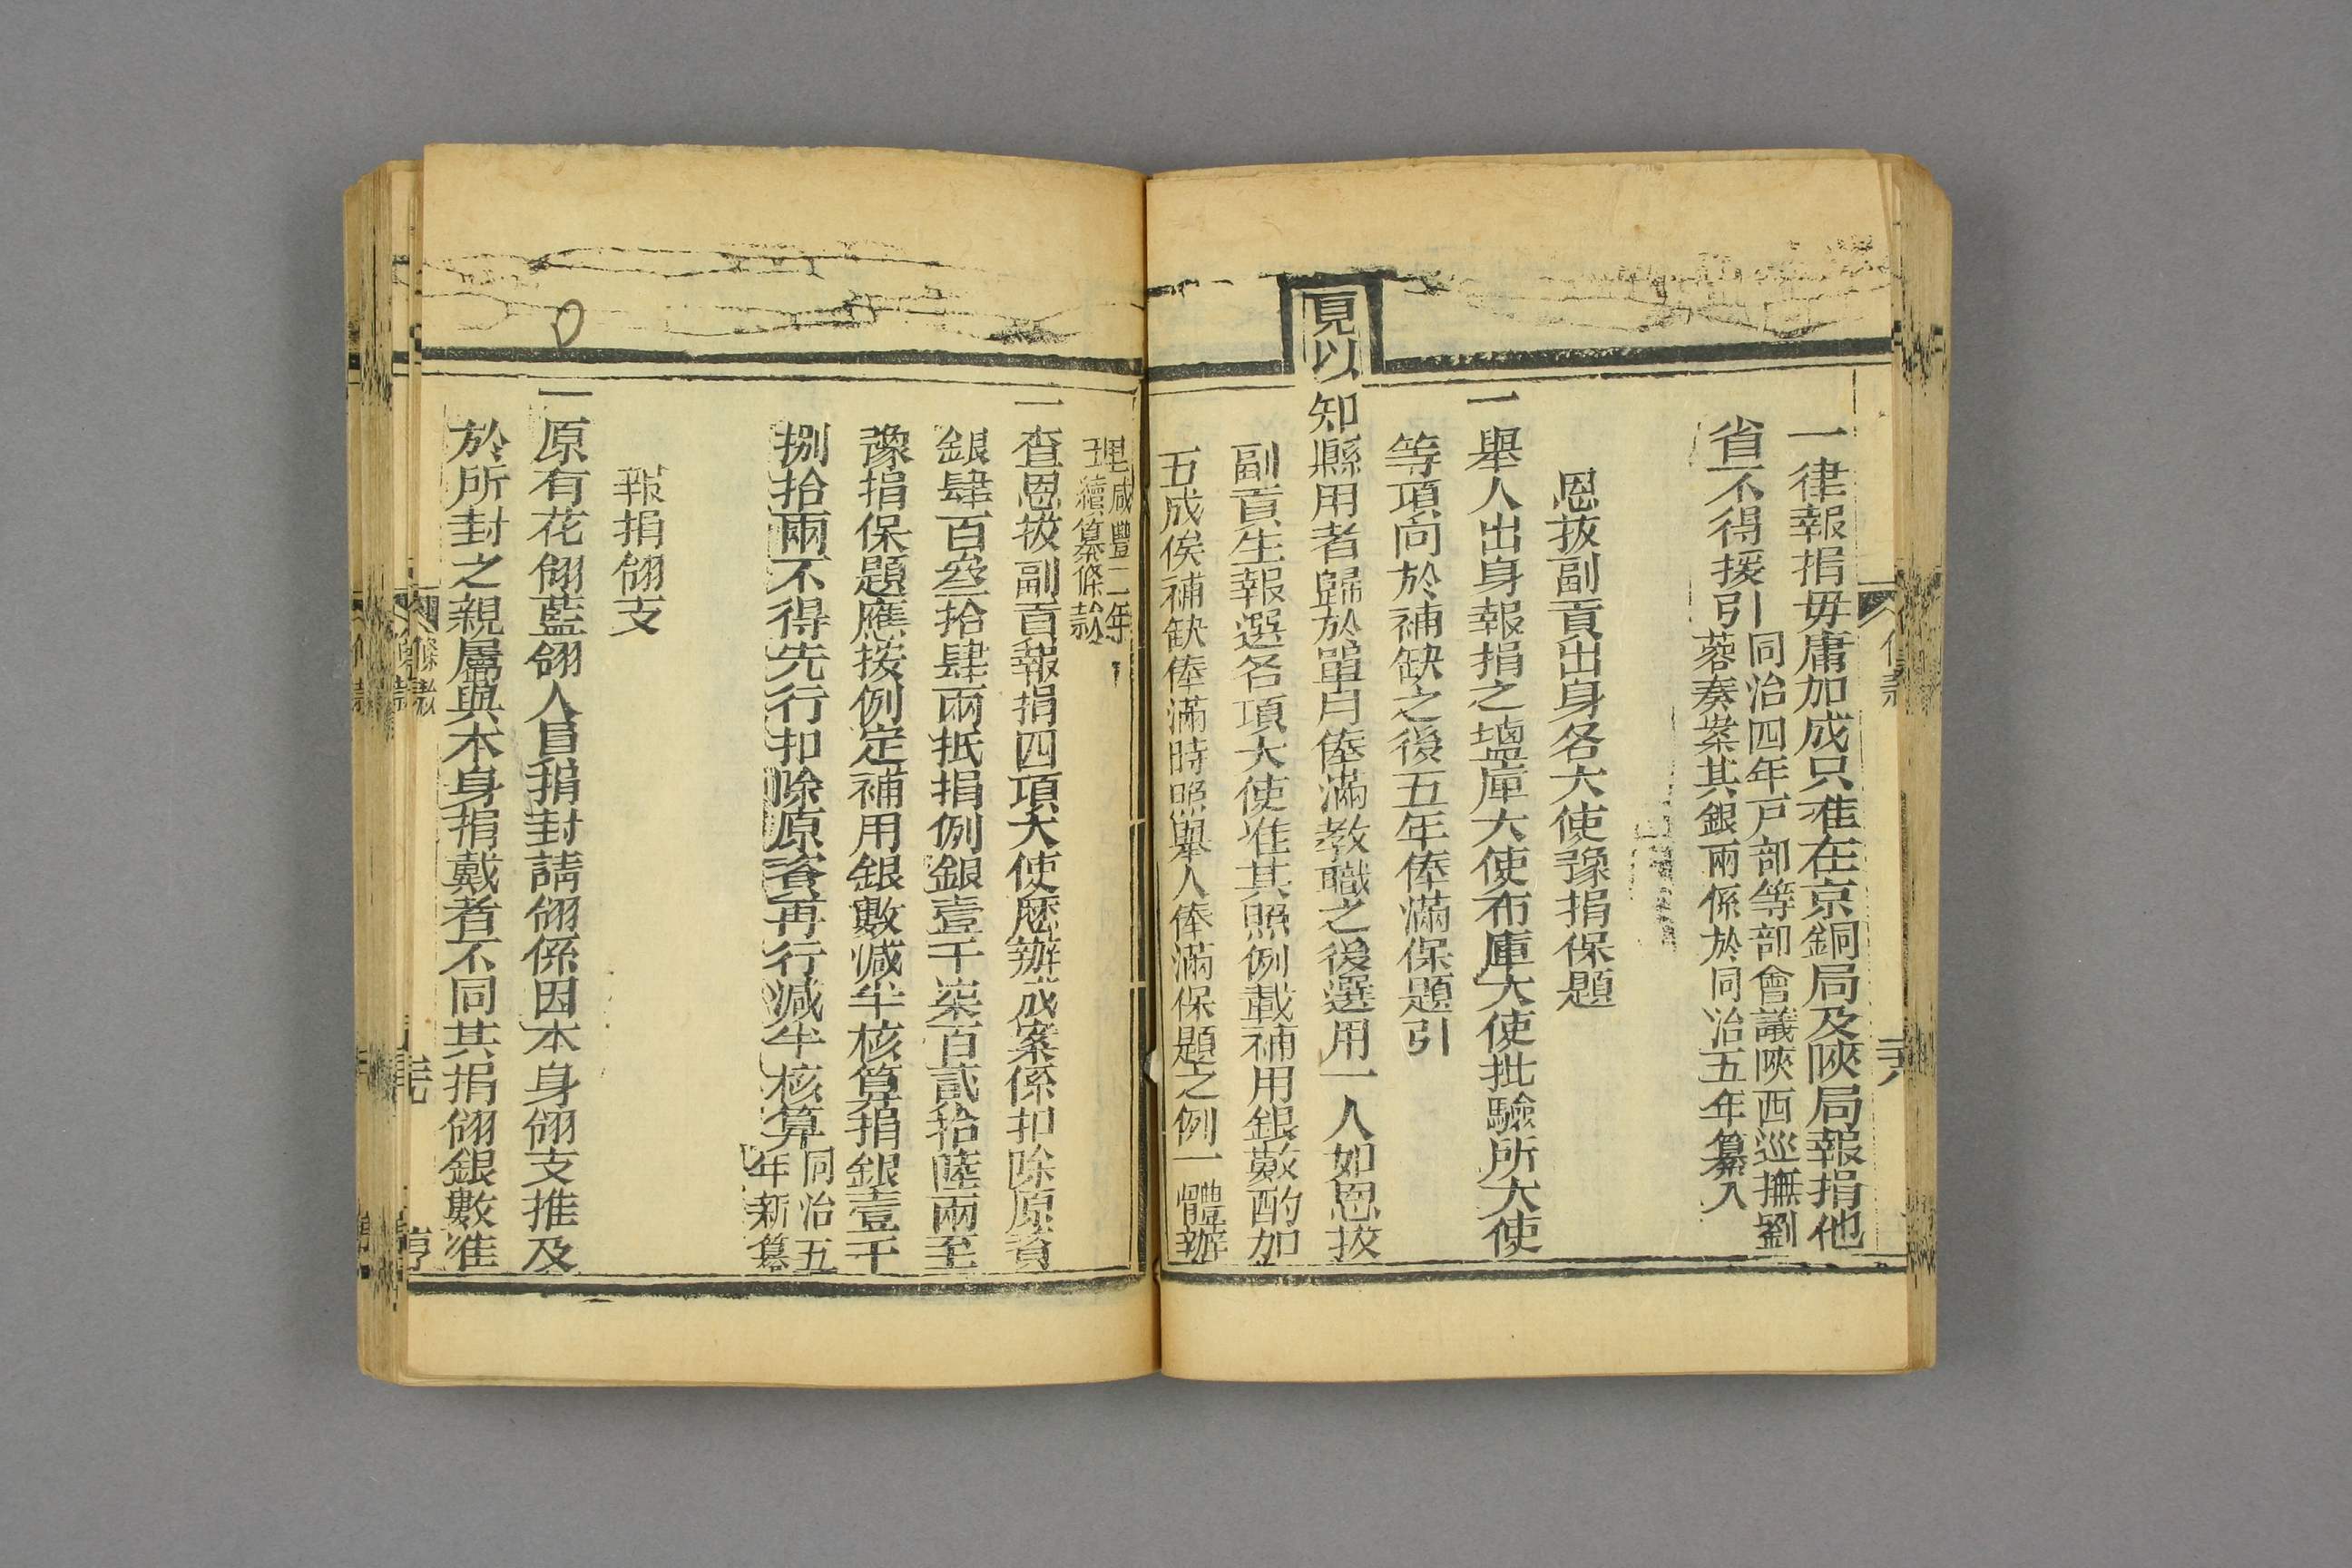 一律報捐毋庸加成只准在京銅局及陝局報捐他
省不得援引
同治四年戸部等部會議陝西巡撫劉
蓉奏案其銀兩係於同治五年纂入
恩拔副貢出身各大使豫捐保題
一舉人出身報捐之塩庫大使布庫大使批驗所大使
等項向於補缺之後五年俸滿保題引
見以知縣用者歸於單月俸滿教職之後選用一人如恩拔
副貢生報選各項大使准其照例載補用銀數酌加
五成俟補缺俸滿時照舉人俸滿保題之例一體辦
理咸豐二年
續纂條款
一查恩拔副貢報捐四項大使歷辦成案係扣除原資
銀肆百叁拾肆兩抵捐例銀壹千柒百貳拾陸兩至
豫捐保題應按例定補用銀數減半核算捐銀壹千
捌拾兩不得先行扣除原資再行減半核算
同治五
年新纂
報捐翎支
一原有花翎藍翎人員捐封請翎係因本身翎支推及
於所封之親屬與本身捐戴者不同其捐翎銀數准